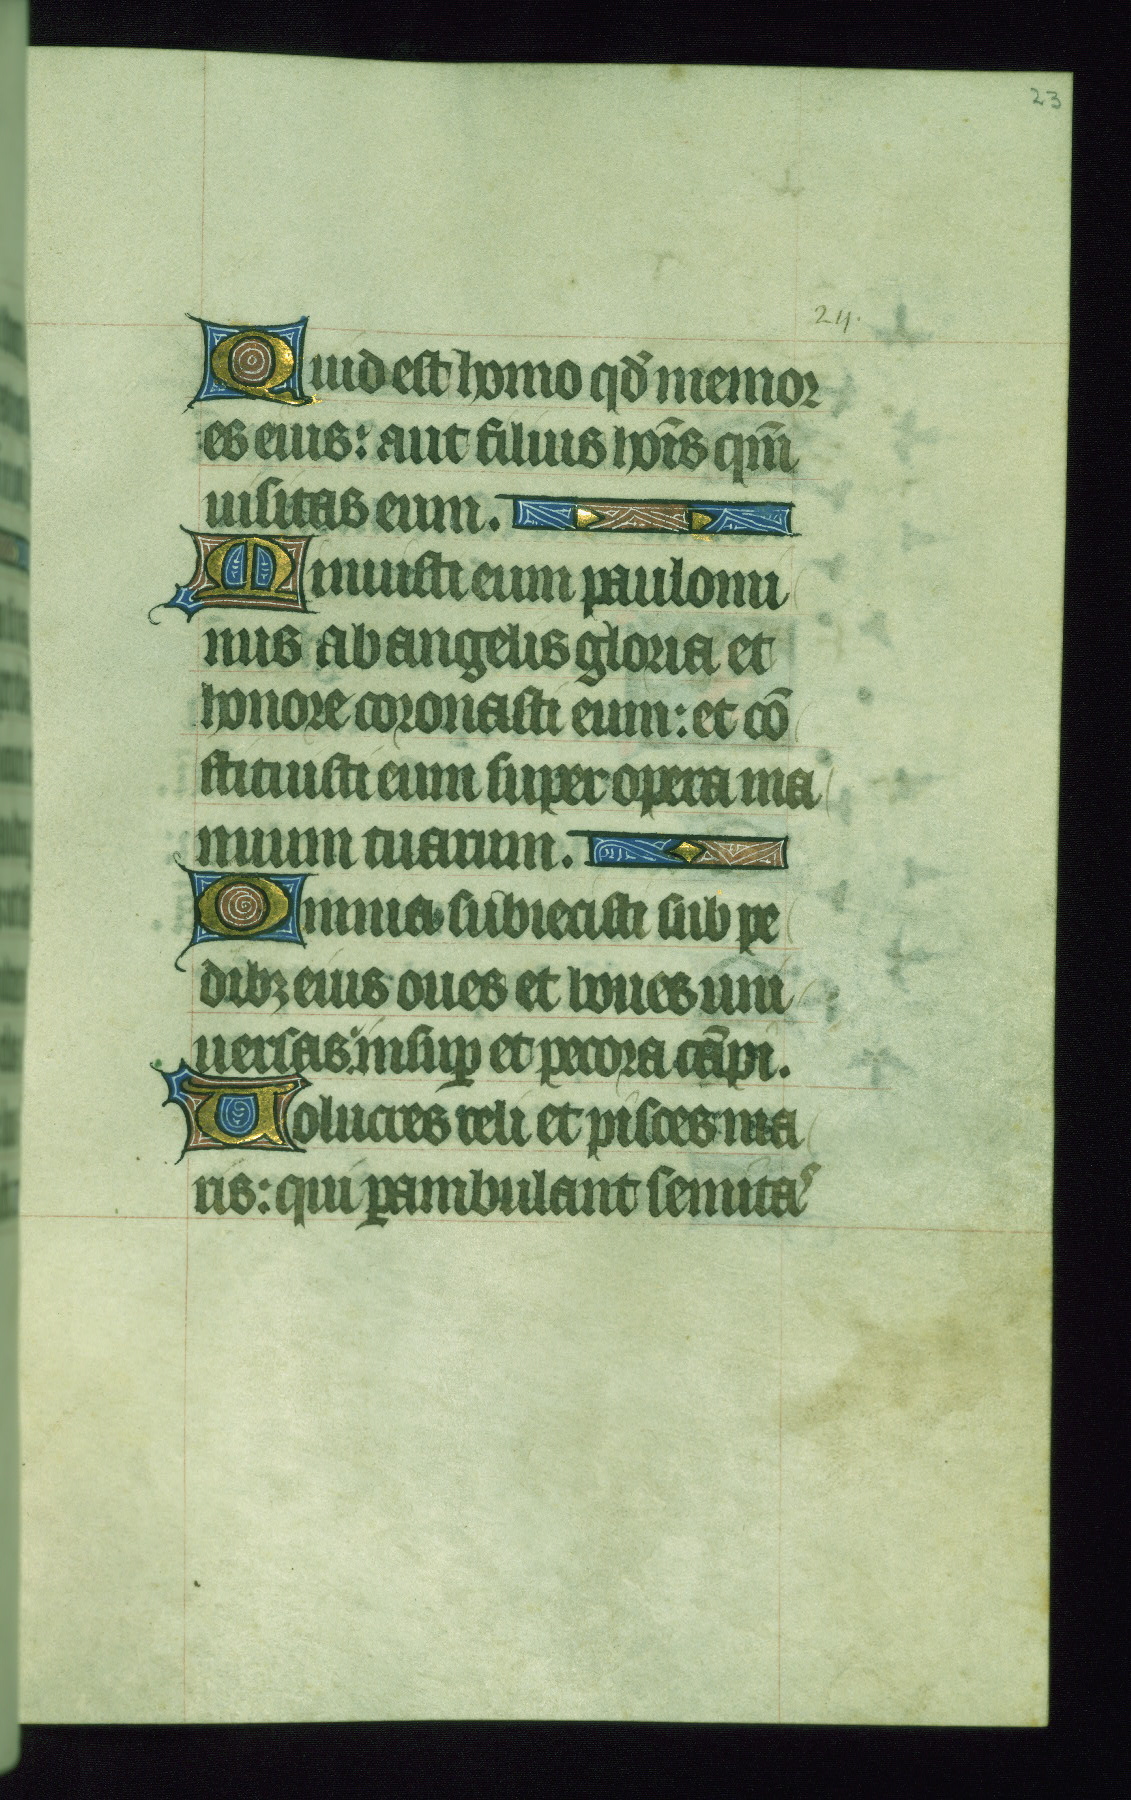 23
24.
Quid est homo qď memor
es eius: aut filius hoı̄s qm̄
uisitas eum.
Minuisti eum paulomi
nus ab angelis gloria et
honore coronasti eum: et cō
stituisti eum super opera ma
nuum tuarum.
Omnia subiecisti sub pe
dibꝫ eius oues et boues uni
uersas: insuꝑ et pecora cāpi.
Uolucres celi et pisces ma
ris: qui ꝑambulant semitaˢ